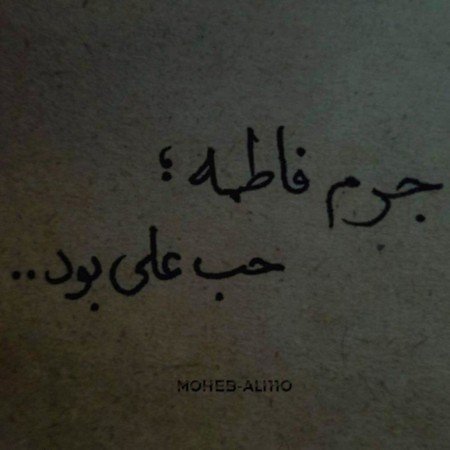 جرم فاطمه؛
حب علی بود..
MOHEB-ALI110